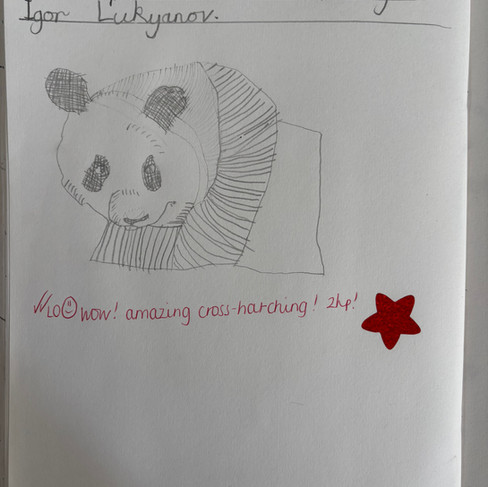 Igor Lukyanov.
LO wow! amazing cross-hatching! 2hp!